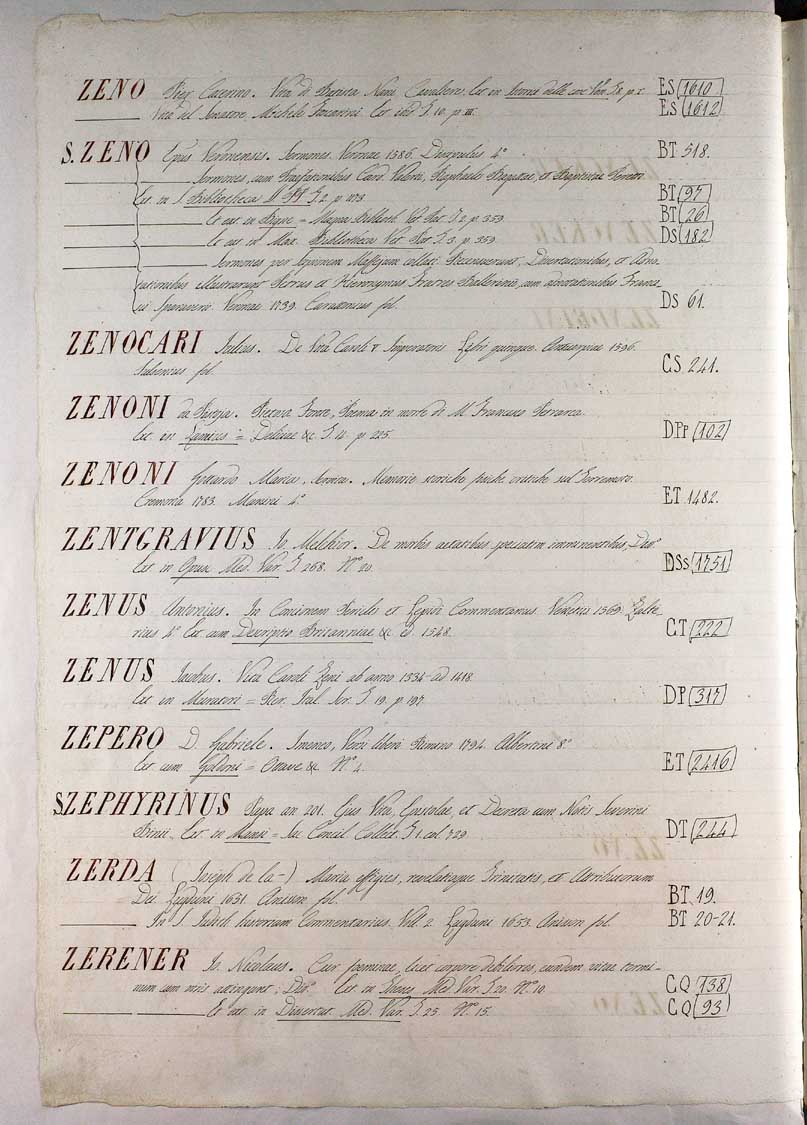 ZENO Pier Caterino. Vita di Batista Nani Cavaliere, Est in Istorici delle cose Ven. T. 8. p. I. ES 1610
Vita del Senatore, Michele Foscarini. Est ibid T. 10. p. III. ES 1612
S. ZENO Epus Veronensis. Sermones. Veronae 1586. Discipulus 4° BT 518.
Sermones, cum Praefationibus Card. Valerii, Raphaelis Bagatae, et Baptistae Peretti
Est in Bibliotheca PP T. 2. p. BT 97
Et est in Bigne = Magna Biblioth. Vet. Pat. T. 2. p. 359 BT 26
Et est in Max. Bibliotheca Vet. Pat. T. 3. p. 359 DS 182
Sermones per Massejum collati Recensuerunt, Dissertationibus, et Anno
tationibus illustrarunt Petrus et Hieronymus Fratres Ballerinii, cum adnotationibus Francis
ci Sparaverii. Veronae 1739. Carattonius fol. DS 61.
ZENOCARI Gulius. De Vita Caroli V Imperatoris Libri quinque. Antuerpiae 1596.
fol. CS 241.
ZENONI da Pistoja. Pietosa Fonte, Poema in morte di M. Francesco Petrarca.
Est. in Lamius = Deliciae &c. T. 14. p. 225. DPp 102
ZENONI Gottardo Maria, Servita. Memorie storiche poche critiche sul Terremoto.
Cremona 1783. Manini 4° ET 1482.
ZENTGRAVIUS Jo. Melchior. De morbis aetatibus speciatim imminentibus, Diss°.
Est in Opusc. Med. Var. T. 268. N°. 20. DSs 1751
ZENUS Antonius. In Concionem Periclis et Lepidi Commentarius. Venetiis 1569. Zalte
rius 4° Est cum Descriptio Britanniae &c. ed. 1548. CT 222
ZENUS Jacobus. Vita Caroli Zeni ab anno 1334 ad 1418.
Est in Muratori = Rer. Ital. Scr. T. 19. p. 197. DP 317
ZEPERO D. Gabriele. Imeneo, Versi liberi. Rimino 1794. Albertini 8°
Est cum Goldoni = Ottave &c. N°. 4. ET 2416
S. ZEPHYRINUS Papa an. 201. Ejus Vita, Epistolae, et Decreta cum Notis Severini
Binii. Est in Mansi = Sac. Concil. Collect. T. 1. col. 729. DT 244
ZERDA (Joseph de la-) Maria effigies, revelatioque Trinitatis, et Attributorum
Dei. Lugduni 1651. Anisson fol. BT 19.
In S. Judith historiam Commentarius. Voll. 2. Lugduni 1653. Anisson fol. BT 20-21.
ZERENER Jo. Nicolaus. Cur foeminae, licet corpore debiliores, eundem vitae termi-
num cum viris attingunt; Diss°. Est in Theses Med. Var. T. 20. N°. 10. CQ 138
Et est in Dissertat. Med. Var. T. 25. N°. 15. CQ 93